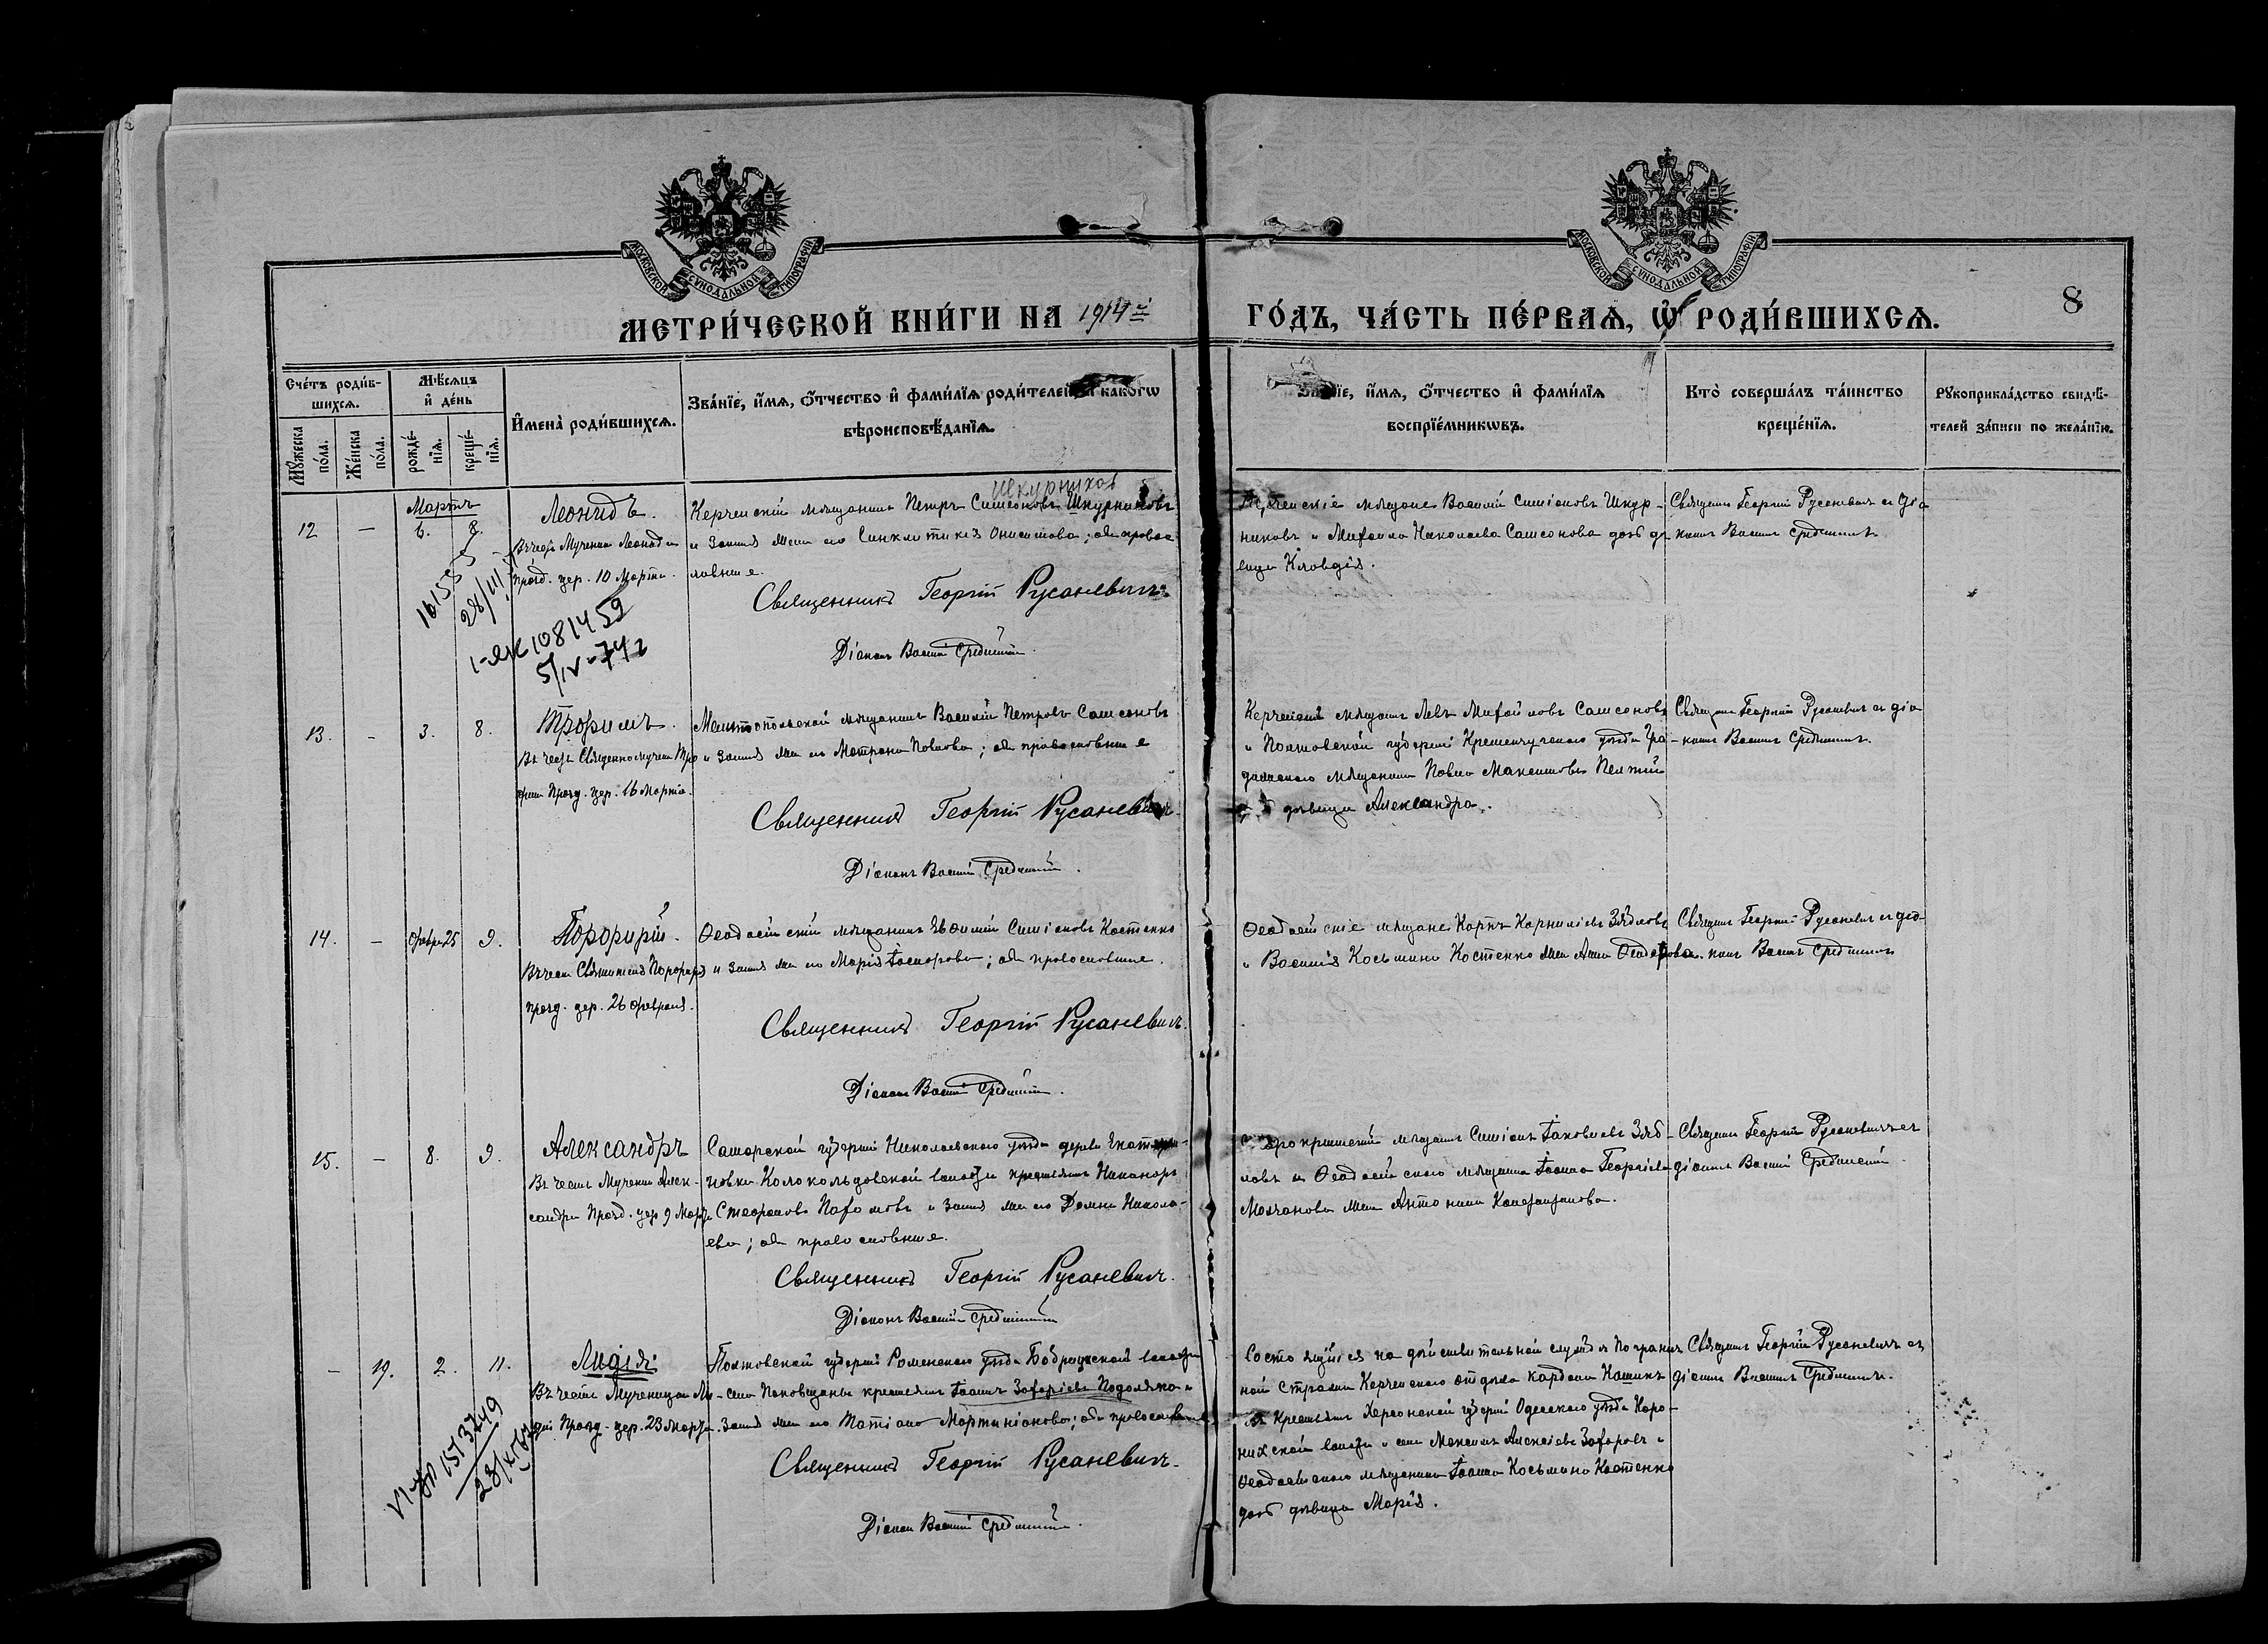 МОСКОВСКОЙ СѴНОДАЛЬНОЙ ТИПОГРАФІИ
МОСКОВСКОЙ СѴНОДАЛЬНОЙ ТИПОГРАФІИ
МЕТРИ́ЧЕСКОЙ КНИ́ГИ НА 1914й
ГО́ДЪ, ЧА́СТЬ ПЕ́РВАѦ, Ѡ РОДИ́ВШИХСѦ.
8
Сче́тъ роди́в-
шихсѧ.
Мꙋжеска
по́ла.
Же́нска
по́ла.
Мѣ́сѧцъ
и҆ де́нь
рожде́-
нїѧ.
креще́-
нїѧ.
И҆мена̀ роди́вшихсѧ.
Зва́нїе, и҆́мѧ, ѻ҆́тчество и҆ фами́лїѧ роди́телей и҆ какогѡ
вѣроисповѣ́данїѧ.
и҆́мѧ, ѻ҆́тчество и҆ фами́лїѧ
воспрїе́мникѡвъ.
Кто̀ соверша́лъ та́инство
креще́нїѧ.
Рꙋкоприкла́дство свидѣ́-
телей за́писи по жела́нїю.
Шкурников
12
—
Мартъ
6.
8.
Леонидъ.
Въ честь Мученика Леонида
празд. цер. 10 Марта.
Керченскій мѣщанинъ Петръ Симеоновъ Шкурниковъ
и законная жена его Синклитикія Онисимова; оба правос
лавные.
Священникъ Георгій Русаневичъ
Діаконъ Василій
Керченскіе мѣщане Василій Симіоновъ Шкур-
никовъ и Михаила Николаева Самсонова дочь дѣ
вица Клавдія.
Священникъ Георгій Русаневичъ съ діа
кономъ Василіемъ
28/III
1-АК 10814 59
5/IV-74г
13.
-
3.
8.
Трофимъ.
Въ честь Священномученика Тро
фима Празд. цер. 16 Марта.
Мелитопольскій мѣщанинъ Василій Петровъ Самсоновъ
и законная жена его Матрона Павлова; оба православные
Священникъ Георгій Русаневичъ.
Діаконъ Василій
Керченскій мѣщанинъ Левъ Михайловъ Самсоновъ
и Полтавской губерніи Кременчугскаго уѣзда Гра
дижскаго мѣщанина Павла Максимова
дѣвица Александра.
Священникъ Георгій Русаневичъ съ діа
кономъ Василіемъ
14.
-
Февр. 25
9.
Порфирій.
Въ честь Святителя Порфирія
празд. цер. 26 Февраля.
Ѳеодосійскій мѣщанинъ Евѳимій Симіоновъ Костенко
и законная жена его Марія Іосифова; оба православные.
Священникъ Георгій Русаневичъ.
Діаконъ Василій
Ѳеодосійскіе мѣщане Карпъ Корниліевъ Зябловъ
и Василія Косьмина Костенко жена Анна Ѳеодорова.
Священникъ Георгій Русаневичъ съ діа-
кономъ Василіемъ
15.
-
8.
9.
Александръ
Въ честь Мученика Алек-
сандра Празд. цер. 9 Марта
Самарской губерніи Николаевскаго уѣзда дерев. Екатери-
новки Колокольцовской волости крестьянинъ Никаноръ
Стефановъ Пахомовъ и законная жена его Домна Никола-
ева; оба православные.
Священникъ Георгій Русаневичъ.
Діаконъ Василій
мѣщанинъ Симіонъ Іаковлевъ Зяб-
ловъ и Ѳеодосійскаго мѣщанина Іоанна Георгіева
Молчанова жена Антонина Константинова.
Священникъ Георгій Русаневичъ съ
діакономъ Василій
-
19.
2.
11.
Лидія
Въ честь Мученицы Ли-
діи Празд. цер. 23 Марта.
Полтавской губерніи Роменскаго уѣзда Бобрицкой волости
села Паковщины крестьянинъ Іоаннъ Захаріевъ Подоляка и
законная жена его Татіана Мартиніанова; оба православные
Священникъ Георгій Русаневичъ.
Діаконъ Василій
Состоящійся на дѣйствительной службѣ Погранич
ной Стражи Керченскаго отдѣла кардона
крестьянинъ Херсонской губерніи Одесскаго уѣзда
волости и села Максимъ Алексіевъ Захаровъ и
Ѳеодосійскаго мѣщанина Іоанна Косьмина Костенко
дочь дѣвица Марія.
Священникъ Георгій Русаневичъ съ
діакономъ Василіемъ